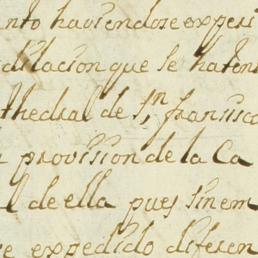 nto haviendose experi
dilacion que se ha ten
thedral de Sn. francisco
provision de la Ca
l de ella pues sin em
se expedido diferen